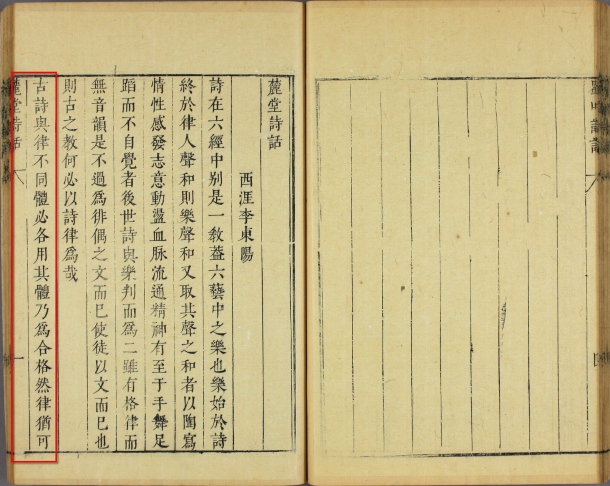 麓堂詩話
西涯李東陽
詩在六經中別是一教蓋六藝中之樂也樂始於詩
終於律人聲和則樂聲和又取其聲之和者以陶寫
情性感發志意動盪血脉流通精神有至于手舞足
蹈而不自覺者後世詩與樂判而爲二雖有格律而
無音韻是不過爲俳偶之文而已使徒以文而已也
則古之教何必以詩律爲哉
古詩與律不同體必各用其體乃爲合格然律猶可
麓堂詩話
一